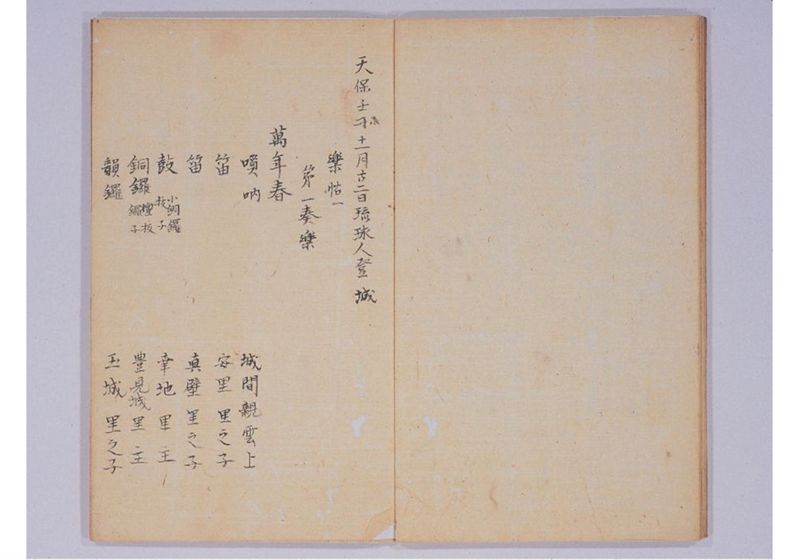 天保壬刁十一月廿二日琉球人登城
樂帖一
第一奏樂
萬年春
嗩吶 城間親雲上
笛 安里 里之子
笛 真壁 里之子
鼓 小銅鑼 板子 幸地 里主
銅鑼 檀板 鑼子 豊見城里主
韻鑼 玉城 里之子